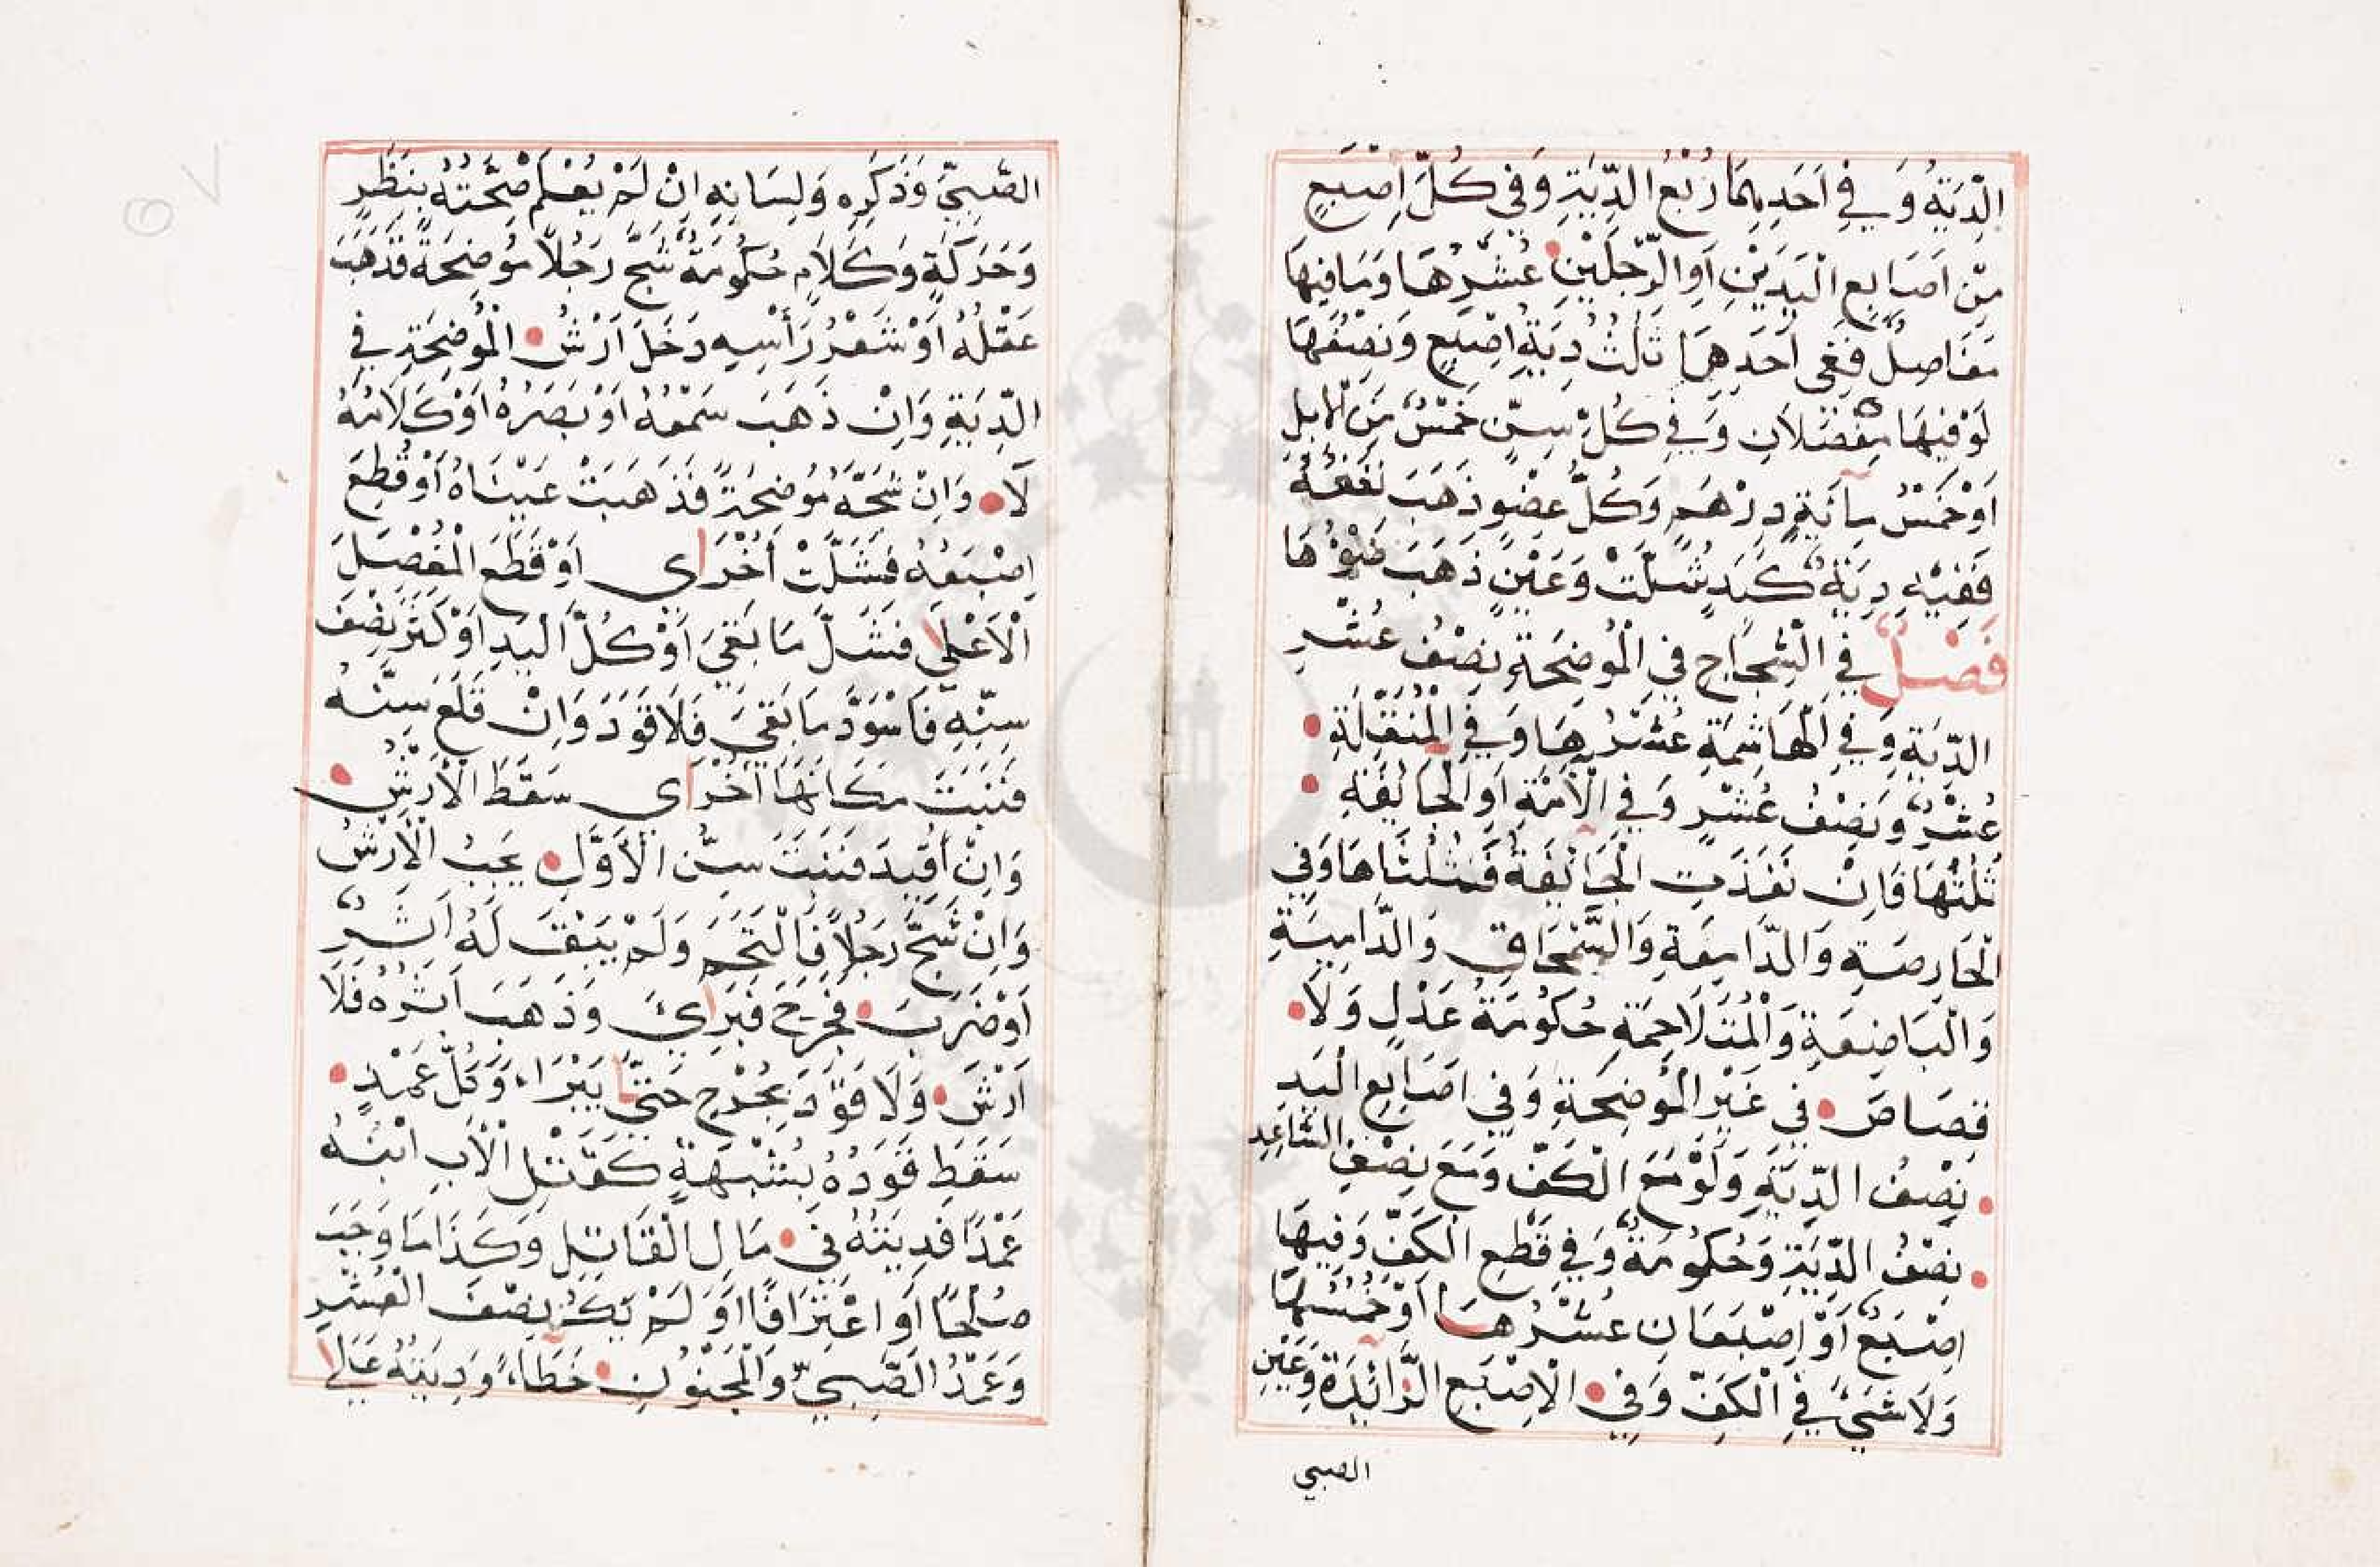 الْدِّيَةُ وَفِي اَحَدِ هِمَا رُبْعُ الدِّيَةِ وَفِي كُلِّ اِصْبَعٍ
مِنْ اَصَابِعِ الْيَدَيْنِ اَوِ الرِّجْلَيْنِ عُشْرُهَا وَمَا فِيهَا
مَفَاصِلُ فَفِي اَحَدِهَا ثُلُثُ دِيَةِ اِصْبَعٍ وَنِصْفُهَا
لَوْ فِيهَا مِفْصَلَانِ وَفِي كُلِّ سِنٍّ خَمْسٌ مِنَ الْاِبِلِ
اَوْ خَمْسُ مِائَةِ دِرْهَمٍ وَكُلُّ عِضْوٍ ذَهَبَ نَفْعُهُ
فَفِيْهِ دِيَةٌ كَيَدٍ شَلَّتْ وَعَيْنٍ ذَهَبَ ضَوْءُهَا
فَصْلٌ فِي الشِّجَاجِ فِي الْمُوضِحَةِ نِصْفُ عُشْرِ
الدِّيَةِ وَفِي الْهَاشِمَةِ عُشْرُهَا وَفِي الْمُنَقِّلَةِ
عُشْرٌ وَنِصْفُ عُشْرٍ وَفِي الْاٰمَّةِ اَوِ الْجَائِفَةِ
ثُلُثُهَا فَاِنْ نَفَذَتِ الْجَائِفَةُ فَثُلُثَاهَا وَفِي
الْحَارِصَةِ وَالدَّامِعَةِ وَالسِّمْحَاقِ وَالدَّامِيَةِ
وَالْبَاضِعَةِ وَالْمُتَلَاحِمَةِ حُكُومَةُ عَدْلٍ وَلَا
قِصَاصَ فِي غَيْرِ الْمُوضِحَةِ وَفِي اَصَابِعِ الْيَدِ
نِصْفُ الدِّيَةِ وَلَوْ مَعَ الْكَفِّ وَمَعَ نِصْفِ السَّاعِدِ
نِصْفُ الدِّيَةِ وَحُكُومَةٌ وَفِي قَطْعِ الْكَفِّ وَفِيهَا
اِصْبَعٌ اَوْ اِصْبَعَانِ عُشْرُهَا اَوْ خُمُسُهَا
وَلَا شَيْءَ فِي الْكَفِّ وَفِي الْاِصْبَعِ الزَّائِدَةِ وَعَيْنِ
الصبي
الصَّبِيِّ وَذَكَرِهِ وَلِسَانِهِ اِنْ لَمْ يُعْلَمْ صِحَّتُهُ بِنَظَرٍ
وَحَرَكَةٍ وَكَلَامٍ حُكُومَةٌ شَجَّ رَجُلًا مُوضِحَةً فَذَهَبَ
عَقْلُهُ اَوْ شَعْرُ رَأْسِهِ دَخَلَ اَرْشُ الْمُوضِحَةِ فِي
الدِّيَةِ وَاِنْ ذَهَبَ سَمْعُهُ اَوْ بَصَرُهُ اَوْ كَلَامُهُ
لَا وَاِنْ شَجَّهُ مُوضِحَةً فَذَهَبَتْ عَيْنَاهُ اَوْ قُطِعَ
اِصْبَعُهُ فَشَلَّتْ اُخْرَاى اَوْ قَطَعَ الْمَفْصِلَ
الْاَعْلٰى فَشَلَّ مَا بَقِيَ اَوْ كُلُّ الْيَدِ اَوْ كَسَرَ نِصْفَ
سِنِّهِ فَاسْوَدَّ مَا بَقِيَ فَلَا قَوَدَ وَاِنْ قَلَعَ سِنَّهُ
فَنَبَتَ مَكَانَهَا اُخْرَاى سَقَطَ الْاَرْشُ
وَاِنْ اُقِيدَ فَنَبَتَ سِنُّ الْاَوَّلِ يَجِبُ الْاَرْشُ
وَاِنْ شَجَّ رَجُلًا فَالْتَحَمَ وَلَمْ يَبْقَ لَهُ اَثَرٌ
اَوْ ضَرَبَ فَجَرَحَ فَبَرَاىَٔ وَذَهَبَ اَثَرُهُ فَلَا
اَرْشَ وَلَا قَوَدَ بِجُرْحٍ حَتّٰى يَبْرَاءَ وَكُلُّ عَمْدٍ
سَقَطَ قَوَدُهُ بِشُبْهَةٍ كَقَتْلِ الْاَبِ ابْنَهُ
عَمْدًا فَدِيَتُهُ فِي مَالِ الْقَاتِلِ وَكَذَا مَا وَجَبَ
صُلْحًا اَوِ اعْتِرَافًا اَوْ لَمْ يَكُنْ نِصْفَ الْعُشْرِ
وَعَمْدُ الصَّبِيِّ وَالْمَجْنُونِ خَطَاءٌ وَدِيَتُهُ عَلٰى